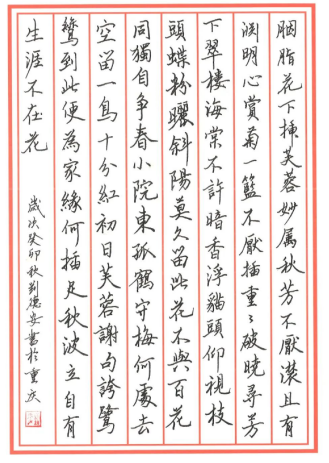 胭脂花下捒芙蓉妙属秋芳不厭瀁且有
渕明心賞菊一籃不厭插重〻破曉尋芳
下翠楼海棠不許暗香浮貓頭仰視枝
頭蝶粉曬斜陽莫久留此花不與百花
同獨自争春小院東孤鶴守梅何處去
空留一鳥十分紅初日芙蓉謝句誇鷺
鸶到此便為家緣何插足秋波立自有
生涯不在花
歲次癸卯秋刘德安書於重庆